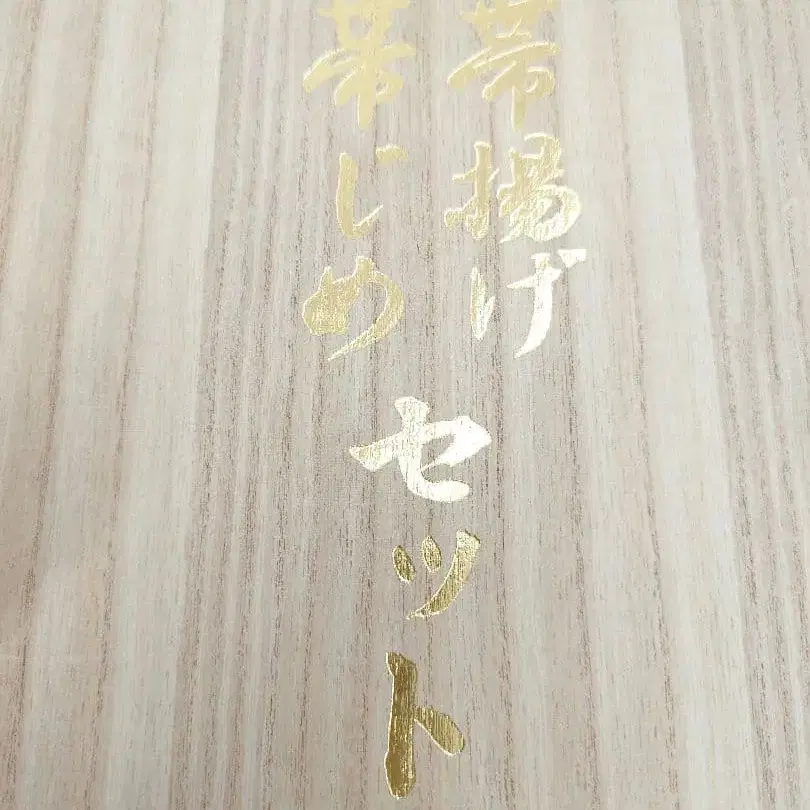 帯揚げ
帯じめ
セット